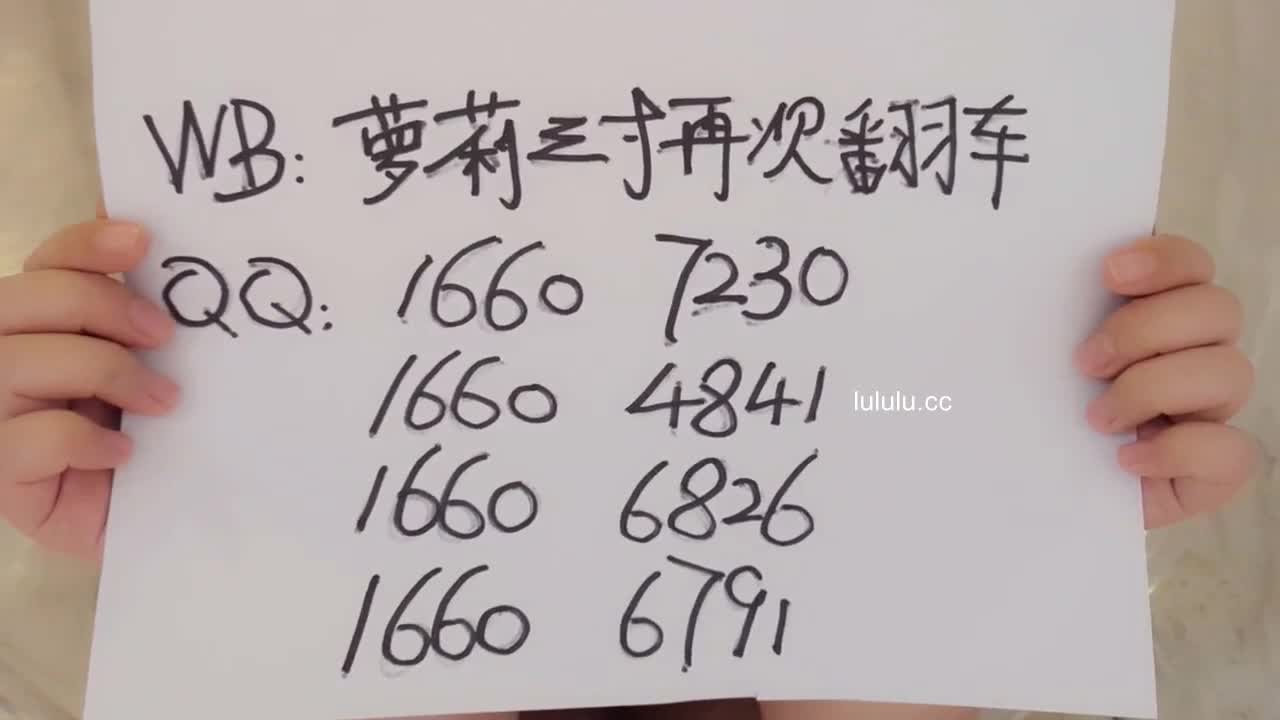 WB: 萝莉三寸再次翻车
QQ: 1660 7230
1660 4841
lululu.cc
1660 6826
1660 6791